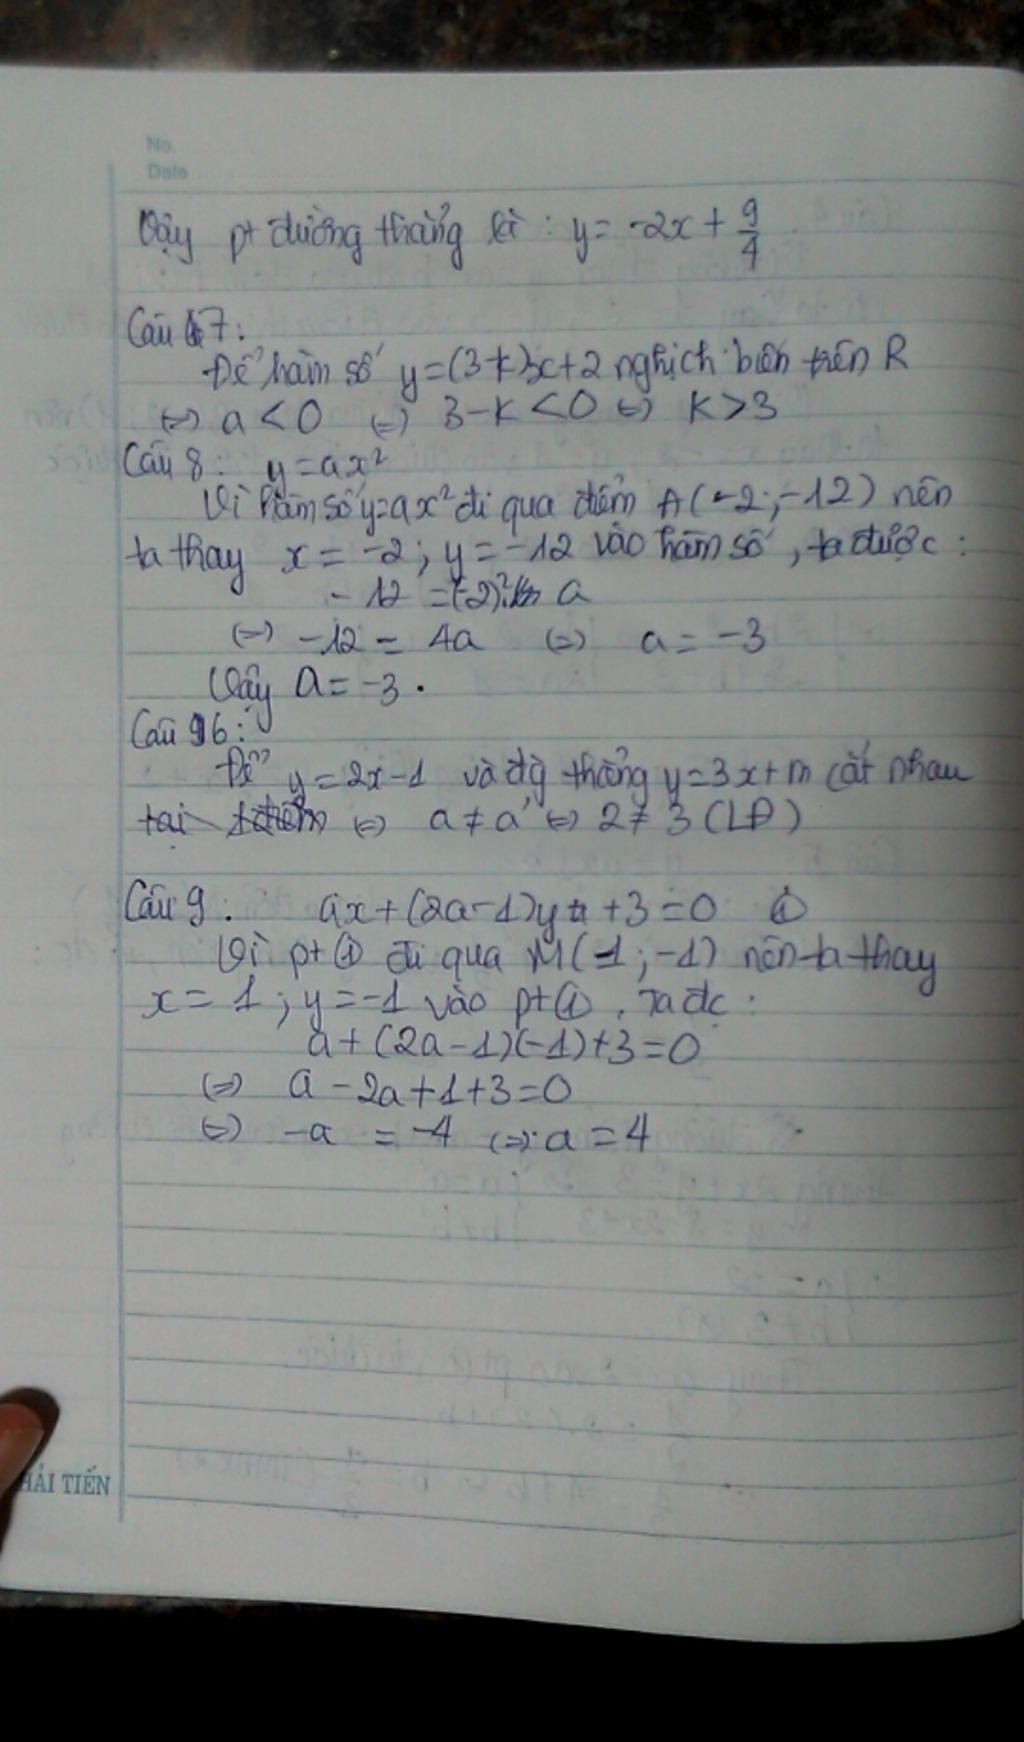 No.
Date
Vậy pt đường thẳng là : y = -2x + 9/4
Câu 7 :
Để hàm số y = (3-k)x + 2 nghịch biến trên R
<=> a < 0 <=> 3 - k < 0 <=> k > 3
Câu 8 : y = ax²
Vì hàm số y = ax² đi qua điểm A(-2 ; -12) nên
ta thay x = -2 ; y = -12 vào hàm số , ta được :
- 12 = (-2)². a
<=> -12 = 4a <=> a = -3
Vậy a = -3 .
Câu 16 :
Để y = 2x - 1 và đg thẳng y = 3x + m cắt nhau
tại 1 điểm <=> a ≠ a' <=> 2 ≠ 3 (LĐ)
Câu 9 : ax + (2a - 1)y + 3 = 0 ①
Vì pt ① đi qua M(1 ; -1) nên ta thay
x = 1 ; y = -1 vào pt ① . Ta đc :
a + (2a - 1)(-1) + 3 = 0
<=> a - 2a + 1 + 3 = 0
<=> -a = -4 <=> a = 4
HẢI TIẾN